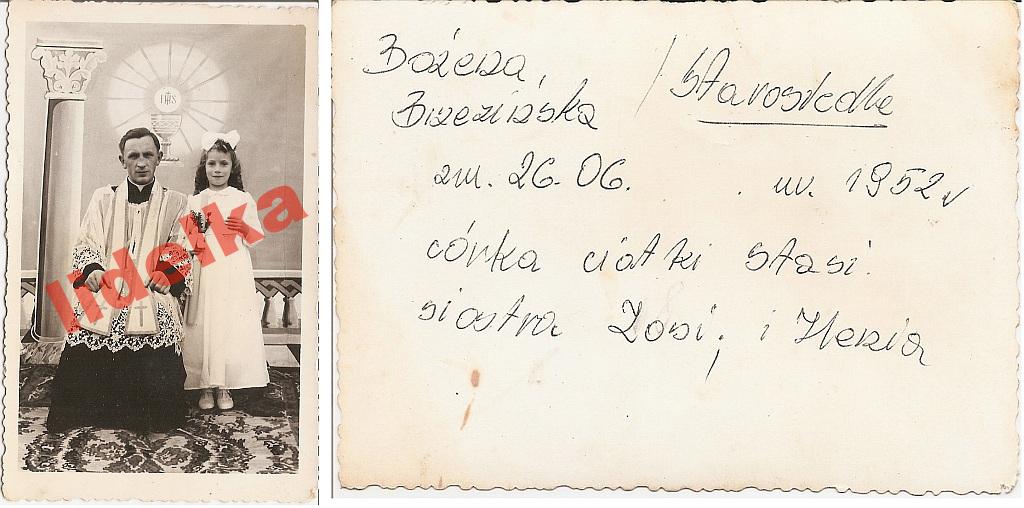 IHS
lidelka
Bożena / Starosiedle
Brzezińska
zm. 26.06. ur. 1952
córka ciotki Stasi.
siostra Zosi, i Henia